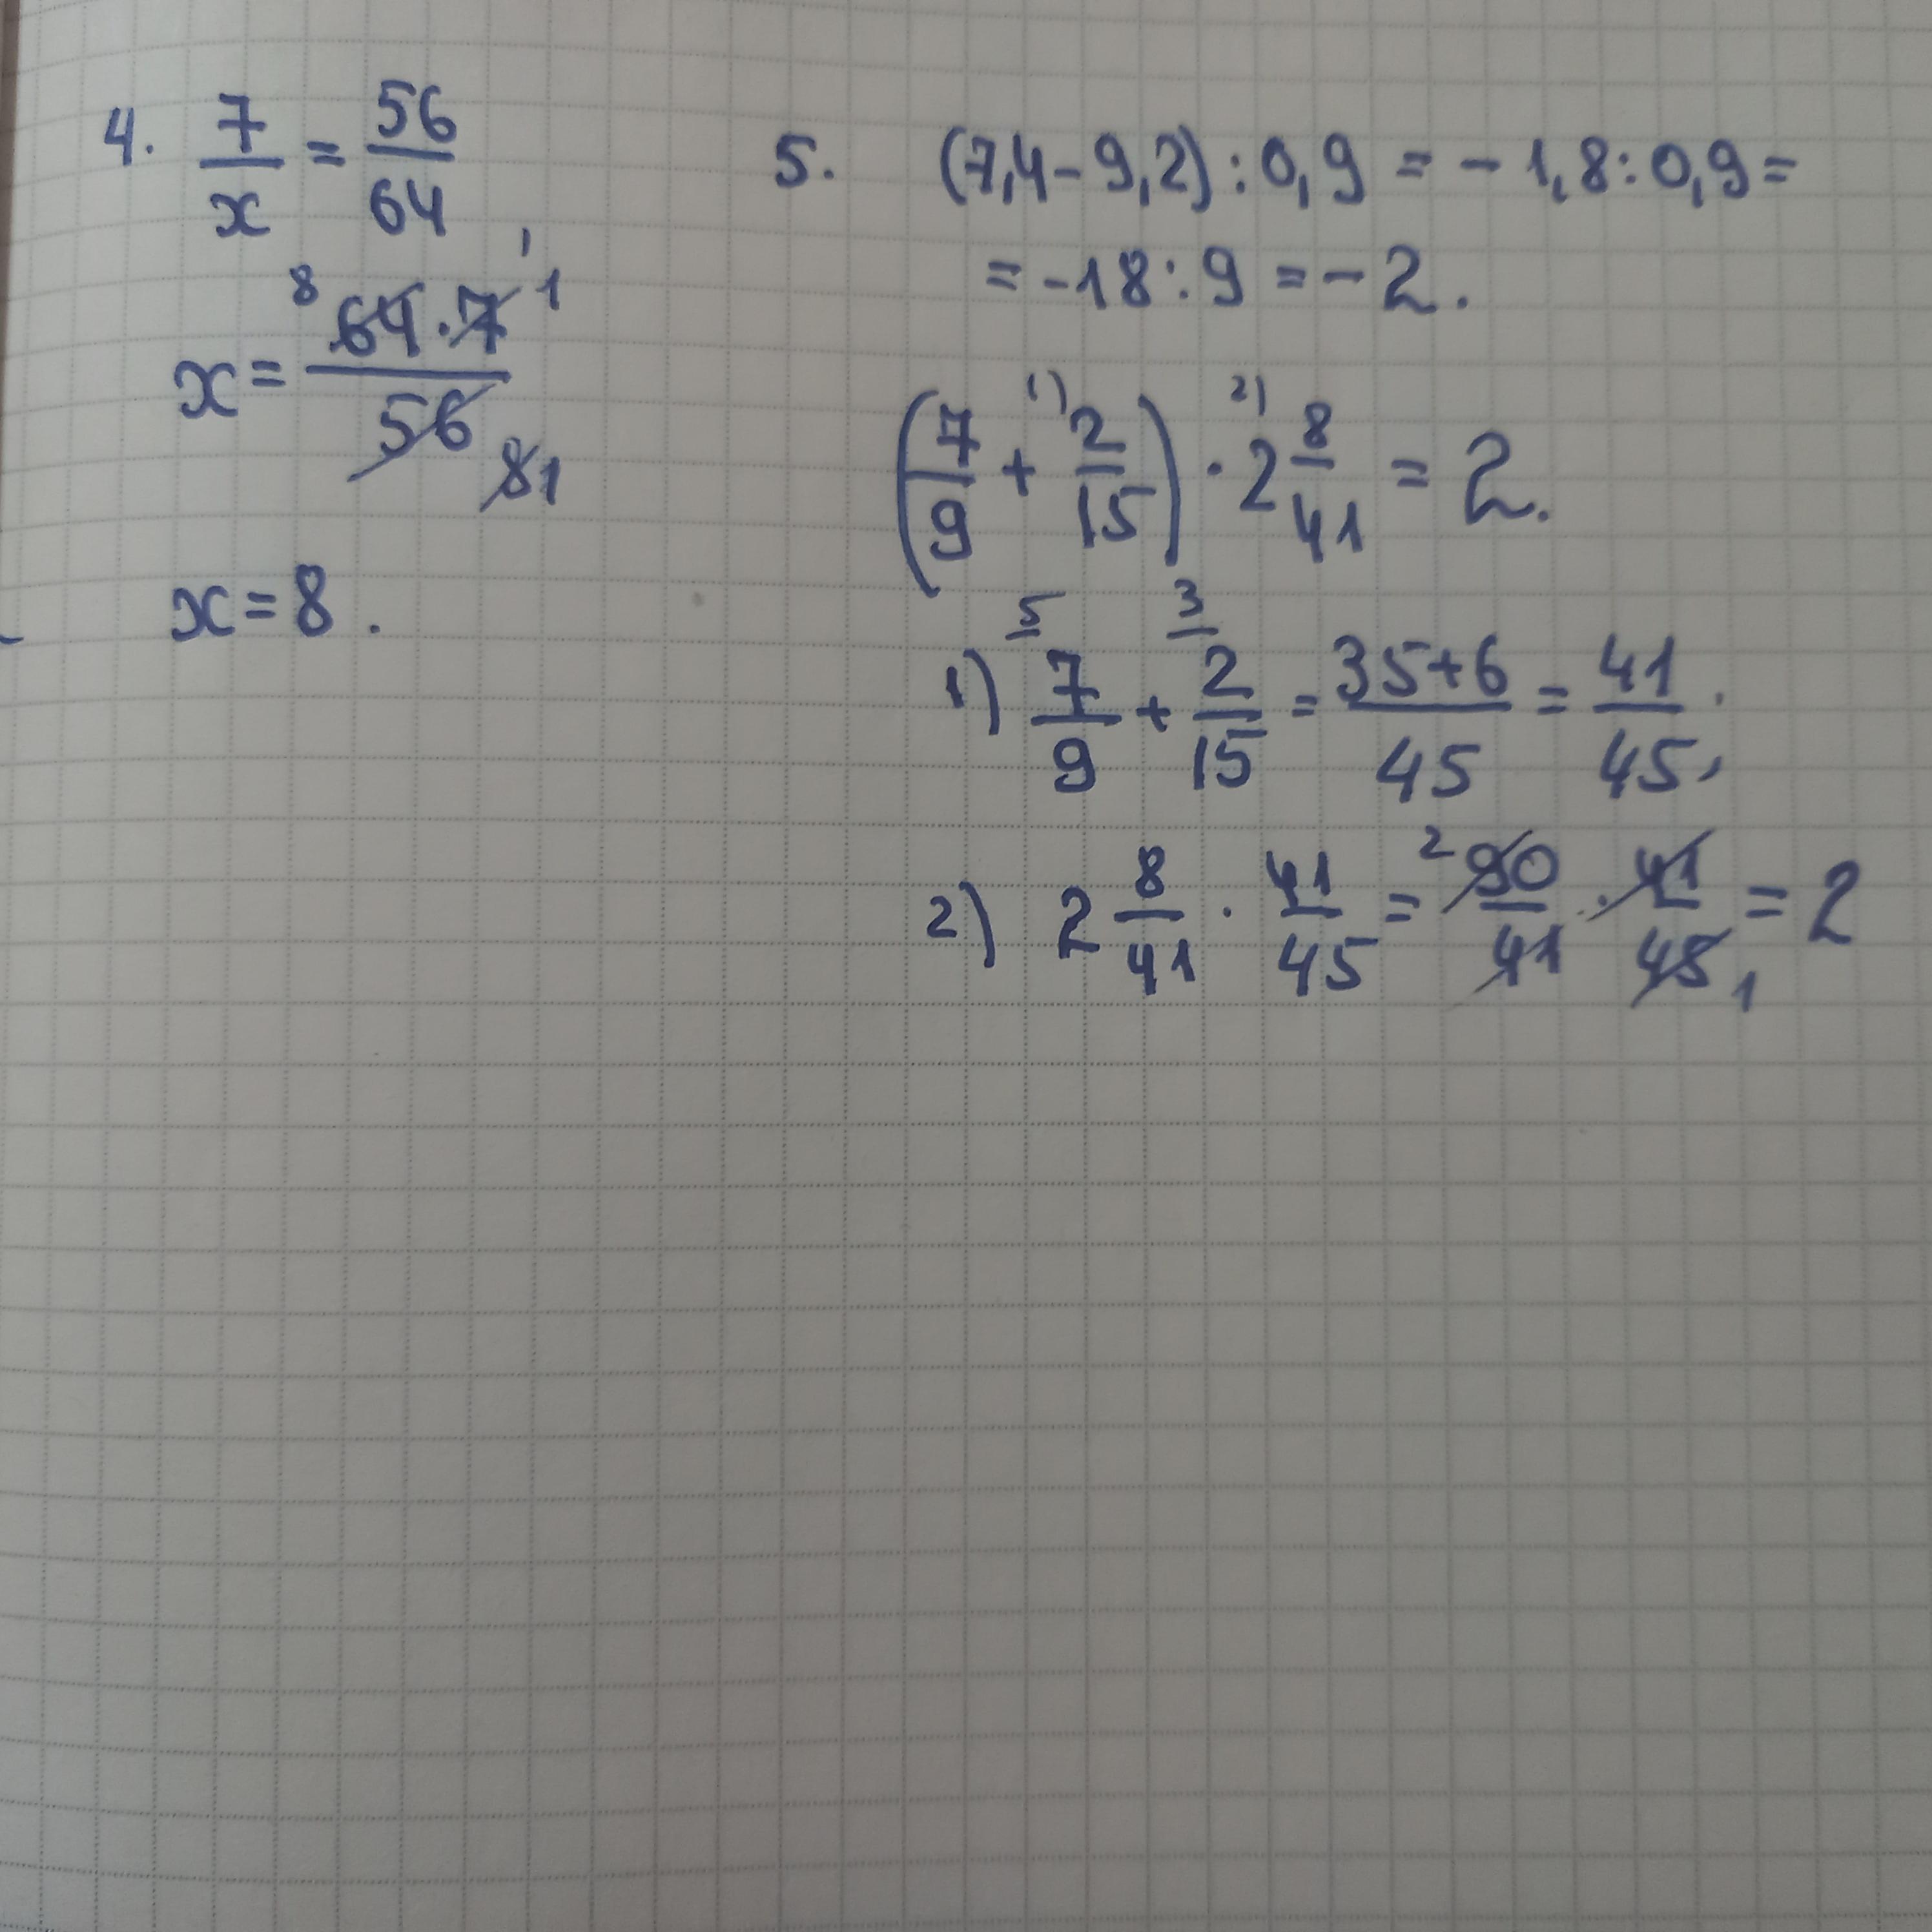 4. 7/x = 56/64,
x = 64·7/56
8 1
8 1
x = 8.
5. (7,4 - 9,2) : 0,9 = -1,8 : 0,9 =
= -18 : 9 = -2.
1) 2)
(7/9 + 2/15) · 2 8/41 = 2.
5 3
1) 7/9 + 2/15 = 35+6/45 = 41/45,
2) 2 8/41 · 41/45 = 2 90/41 · 41/45 1 = 2